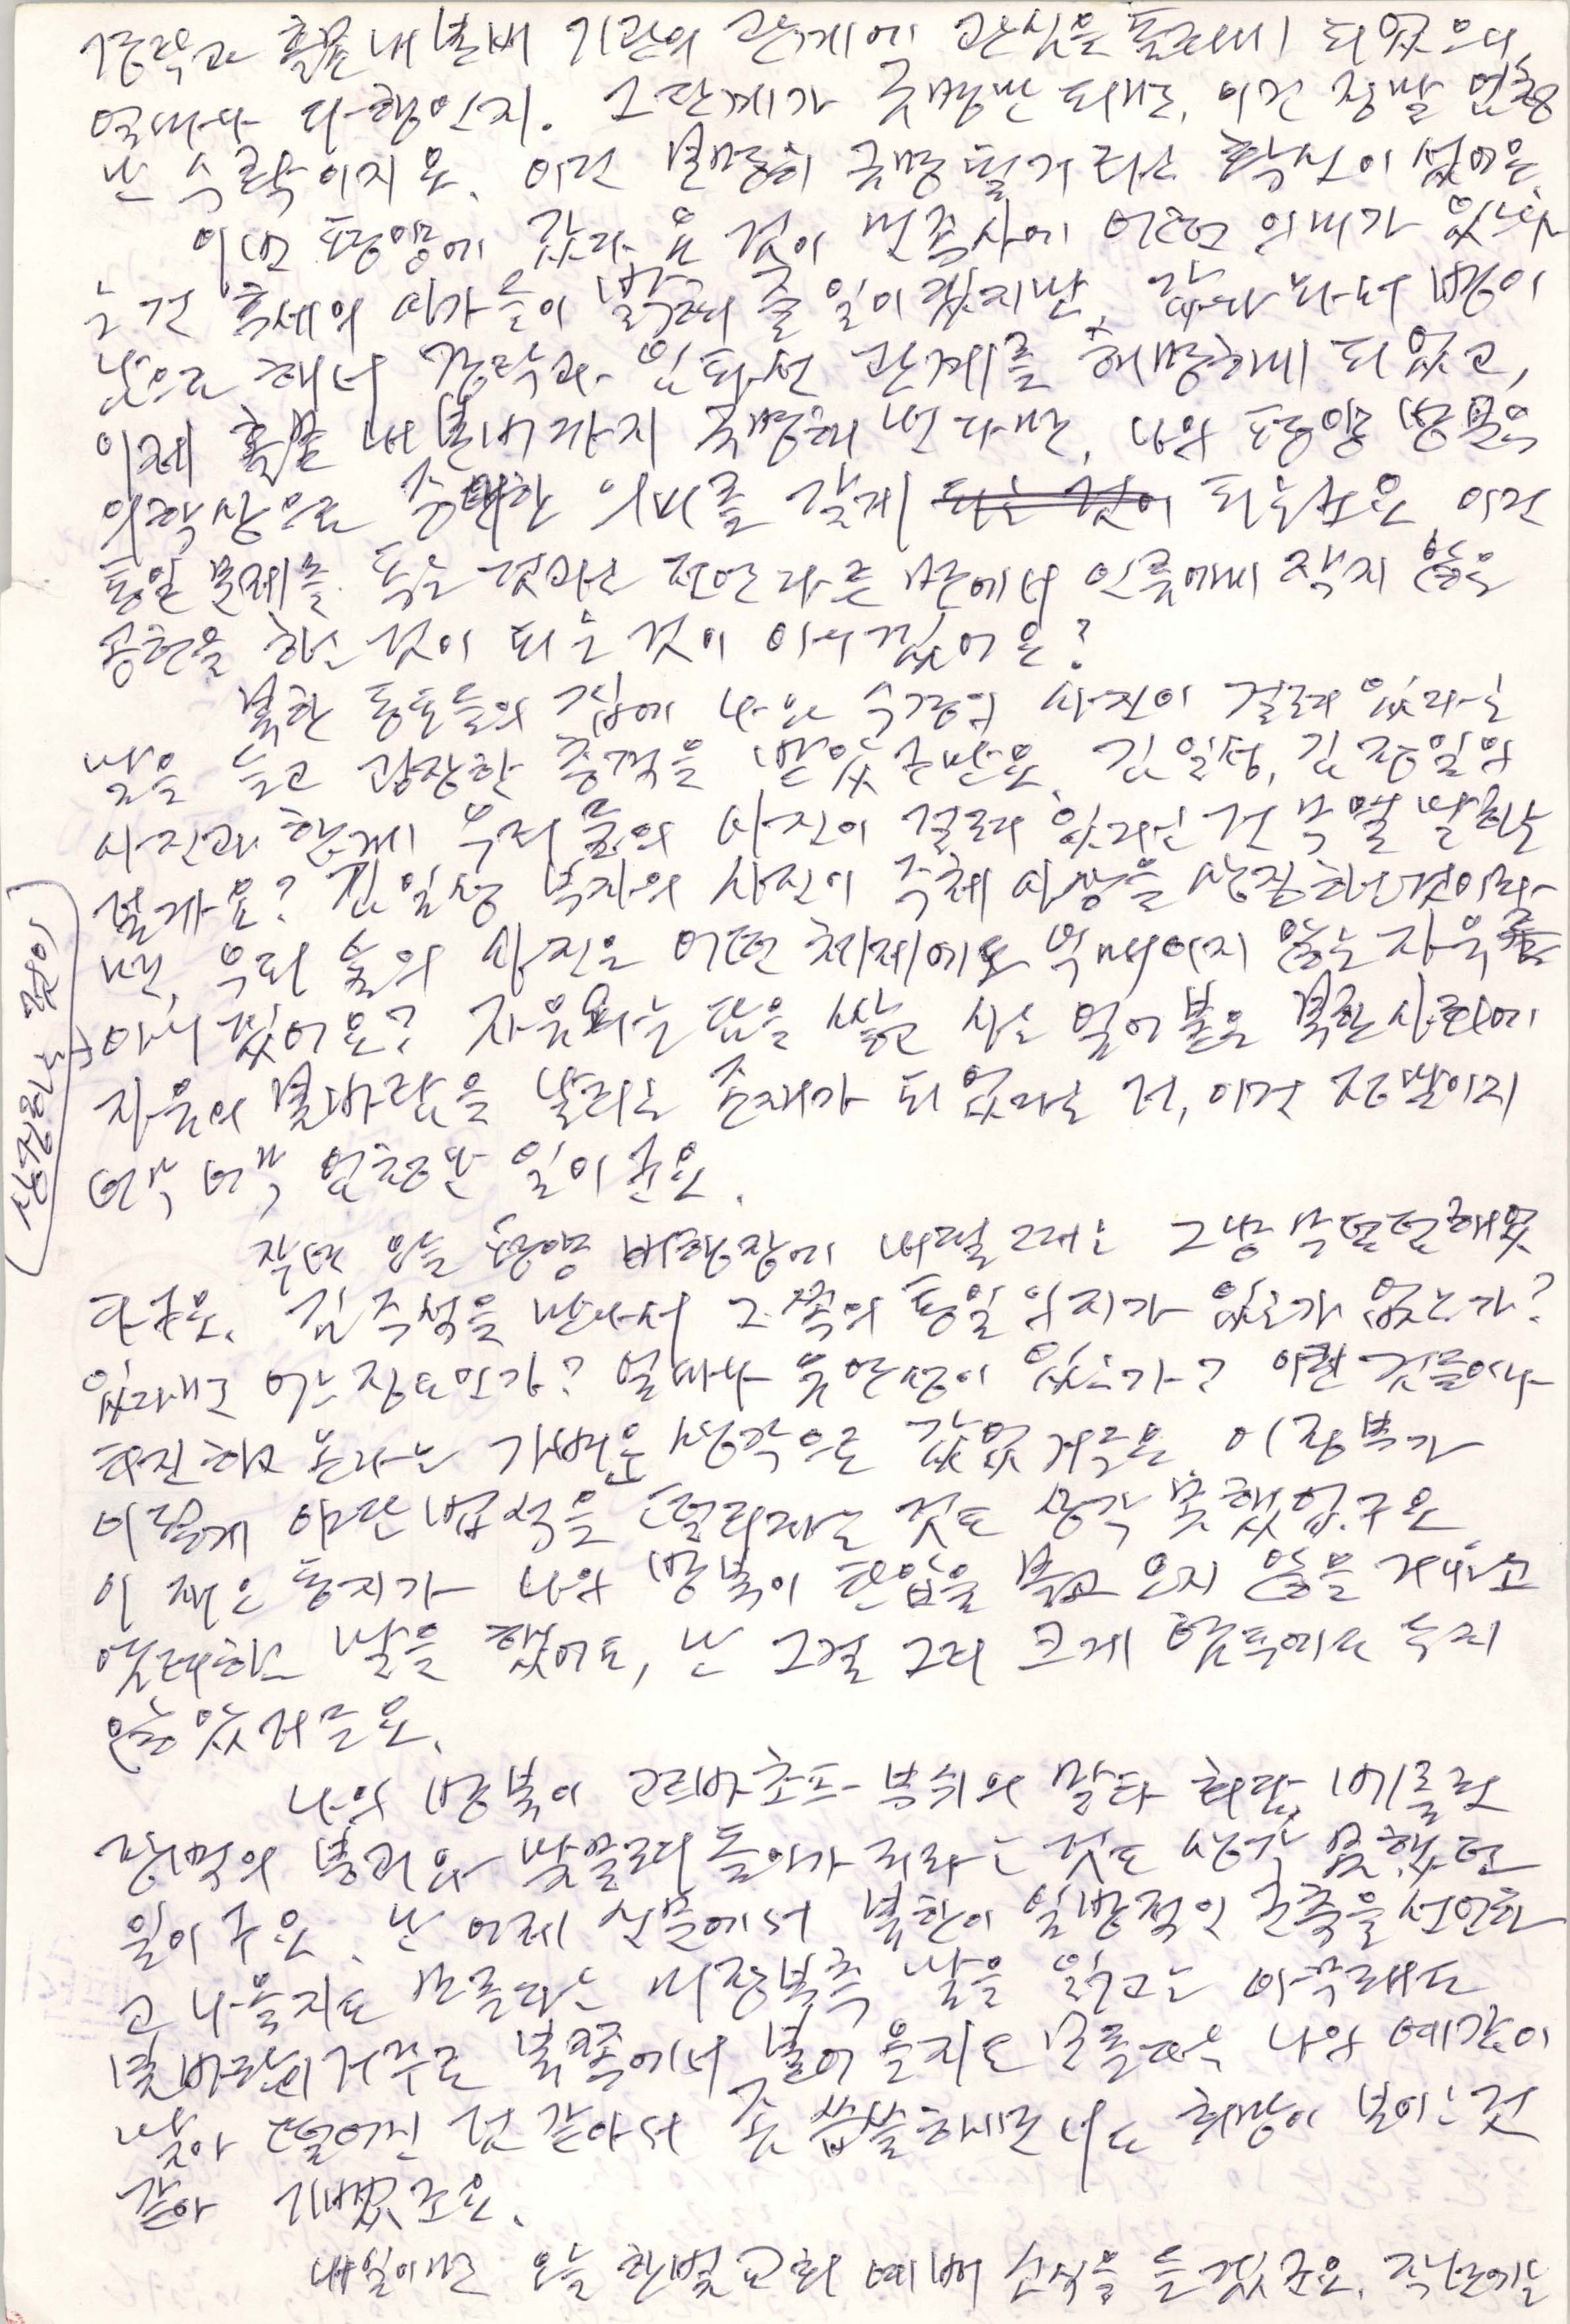 경락과 홀몬 내분비 기관의 관계에 관심을 돌리게 되었으니
얼마나 다행인지. 그 관계가 규명만 되면, 이건 정말 엄청
난 수확이지요. 이건 분명히 규명될거라는 확신이 섰어요.
이번 평양에 갔다 온 것이 민족사에 어떤 의미가 있느냐
는 건 후세의 사가들이 밝혀 줄 일이겠지만, 갔다 와서 병이
남으로 해서 경락과 임파선 관계를 해명하게 되었고,
이제 홀몬 내분비까지 규명해 낸다면, 나의 평양 방문은
의학상으로 중대한 의미를 갖게 되는 것이 되는군요. 이건
통일 문제를 푸는 것과는 전연 다른 면에서 인류에게 작지 않은
공헌을 하는 것이 되는 것이 아니겠어요?
북한 동포들의 집에 나와 수경의 사진이 걸려 있다는
말을 듣고 굉장한 충격을 받았구만요. 김일성, 김정일의
사진과 함께 우리 둘의 사진이 걸려 있다는 건 무얼 말하는
걸까요? 김일성 부자의 사진이 주체 사상을 상징하는 것이라
면, 우리 둘의 사진은 어떤 체제에도 얽매이지 않는 자유를
(상징하는 것이)
아니겠어요? 자유라는 담을 쌓고 사는 얼어붙은 북한 사회에
자유의 봄바람을 날리는 존재가 되었다는 것, 이건 정말이지
엄청난 일이군요.
작년 오늘 평양 비행장에 내릴 때는 그냥 무덤덤해 있
다구요. 김주석을 만나서 그쪽의 통일 의지가 있는가 없는가?
있다면 어느 정도인가? 얼마나 융통성이 있는가? 이런 것들이나
타진하고 온다는 가벼운 생각으로 갔었거든요. 이 정부가
이렇게 야단법석을 떨리라는 것도 생각 못했었구요.
이재오 동지가 나의 방북이 탄압을 몰고 오지 않을 거냐고
염려하는 말을 했어도, 난 그걸 그리 크게 염두에도 두지
않았거든요.
나의 방북이 고르바초프-부쉬의 말타 회담, 베를린
장벽의 붕괴와 맞물려 돌아가리라는 것도 생각 못했던
일이구요. 난 어제 신문에서 북한이 일방적인 군축을 선언하
고 나올지도 모른다는 이장복측 말을 읽고는 아무래도
봄바람이 거꾸로 북쪽에서 불어 올지도 모른다는 나의 예감이
맞아 떨어진 것 같아서 좀 씁쓸하면서도 희망이 보이는 것
같아 기뻤군요.
내일이면 오늘 한빛교회 예배 소식을 듣겠군요. 작년에는